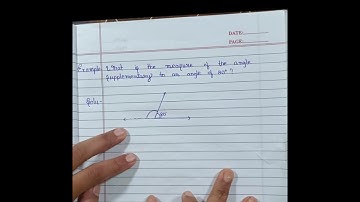 DATE:
PAGE:
Example: What is the measure of the angle
supplementary to an angle of 80° ?
Solu -
80°